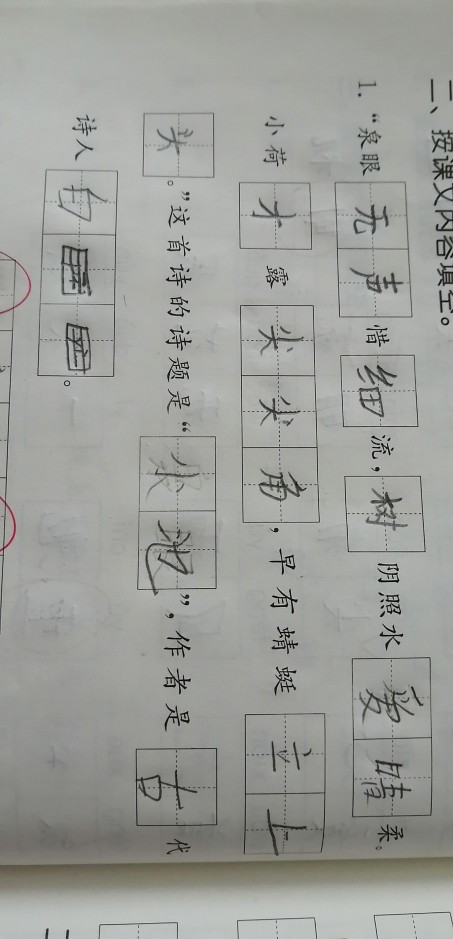 二、按课文内容填空。
1. “泉眼无声惜细流，树阴照水爱晴柔。
小荷才露尖尖角，早有蜻蜓立上
头。”这首诗的诗题是“池”，作者是古代
诗人白。